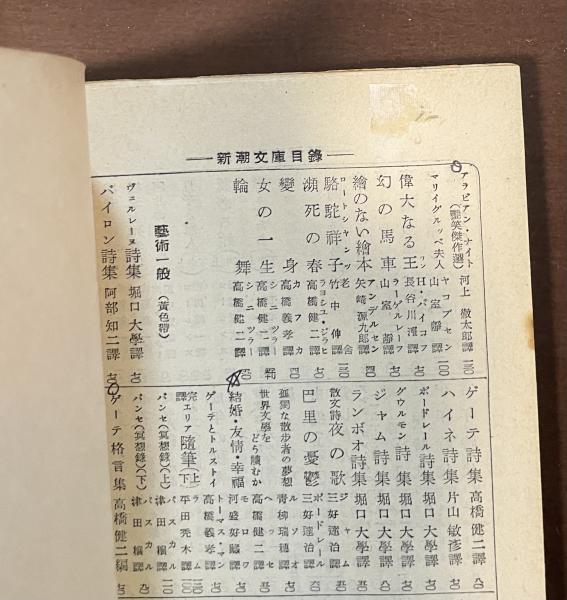 新潮文庫目錄
アラビアン・ナイト(艶笑傑作選) 河上徹太郎譯
マリイ・グルッベ夫人 ヤコブセン 山室靜譯 一〇〇
偉大なる王 N・バイコフ 長谷川濬譯
幻の馬車 ラーゲルレーフ 山室靜譯
繪のない繪本 アンデルセン 矢崎源九郎譯
駱駝祥子 老舍 竹中伸譯
瀕死の春 ラヨシュ・ジラヒ 高橋健二譯
變身 カフカ 高橋義孝譯
女の一生 シュニツラー 高橋健二譯
輪舞 シュニツラー 高橋健二譯
藝術一般(黃色帶)
ヴェルレーヌ詩集 堀口大學譯
バイロン詩集 阿部知二譯
ゲーテ詩集 高橋健二譯 八〇
ハイネ詩集 片山敏彥譯
ボードレール詩集 堀口大學譯
グウルモン詩集 堀口大學譯
ジャム詩集 堀口大學譯
ランボオ詩集 堀口大學譯
散文詩 夜の歌 ジャム 三好達治譯
巴里の憂鬱 ボードレール 三好達治譯
孤獨な散歩者の夢想 ルソオ 青柳瑞穗譯
世界文學をどう讀むか ヘッセ 高橋健二譯
結婚・友情・幸福 モロワ 河盛好藏譯
ゲーテとトルストイ トーマス・マン 高橋義孝譯
完譯エリア隨筆(上)(下) ラム 平田禿木譯
パンセ(冥想錄)(上) パスカル 津田穰譯
パンセ(冥想錄)(下) パスカル 津田穰譯
ゲーテ格言集 高橋健二編